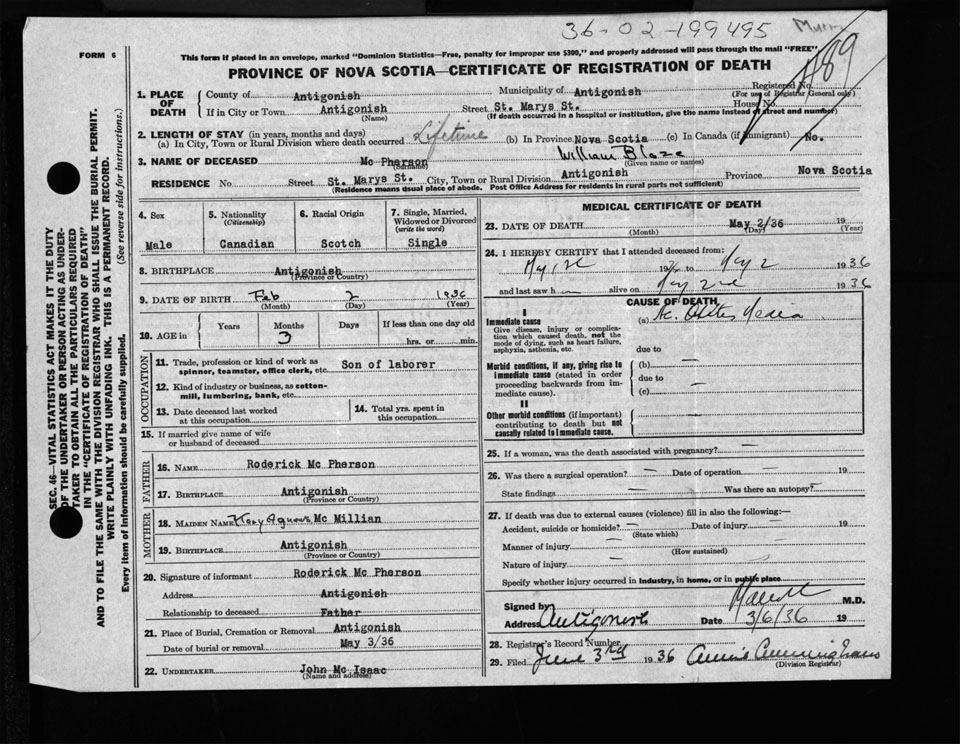 36-02-199495
FORM 6
This form if placed in an envelope, marked "Dominion Statistics—Free, penalty for improper use $300," and properly addressed will pass through the mail "FREE"
PROVINCE OF NOVA SCOTIA—CERTIFICATE OF REGISTRATION OF DEATH
489
1. PLACE OF DEATH
County of Antigonish Municipality of Antigonish Registered No.
(For use of Registrar General only)
If in City or Town Antigonish Street St. Marys St. House No.
(Name) (If death occurred in a hospital or institution, give the name instead of street and number)
2. LENGTH OF STAY (in years, months and days)
(a) In City, Town or Rural Division where death occurred Lifetime (b) In Province Nova Scotia (c) In Canada (if immigrant) No.
3. NAME OF DECEASED Mc Pherson William Blaze
(Surname) (Given name or names)
RESIDENCE No. Street St. Marys St. City, Town or Rural Division Antigonish Province Nova Scotia
(Residence means usual place of abode. Post Office Address for residents in rural parts not sufficient)
4. Sex
Male
5. Nationality
(Citizenship)
Canadian
6. Racial Origin
Scotch
7. Single, Married, Widowed or Divorced
(write the word)
Single
8. BIRTHPLACE Antigonish
(Province or Country)
9. DATE OF BIRTH Feb 2 1936
(Month) (Day) (Year)
10. AGE in Years Months Days If less than one day old
3 hrs. or min.
OCCUPATION
11. Trade, profession or kind of work as spinner, teamster, office clerk, etc. Son of laborer
12. Kind of industry or business, as cotton-mill, lumbering, bank, etc.
13. Date deceased last worked at this occupation
14. Total yrs. spent in this occupation
15. If married give name of wife or husband of deceased
FATHER
16. NAME Roderick Mc Pherson
17. BIRTHPLACE Antigonish
(Province or Country)
MOTHER
18. MAIDEN NAME Agnes Mc Millian
19. BIRTHPLACE Antigonish
(Province or Country)
20. Signature of informant Roderick Mc Pherson
Address Antigonish
Relationship to deceased Father
21. Place of Burial, Cremation or Removal Antigonish
Date of burial or removal May 3/36
22. UNDERTAKER John Mc Isaac
(Name and address)
MEDICAL CERTIFICATE OF DEATH
23. DATE OF DEATH May 2/36 19
(Month) (Day) (Year)
24. I HEREBY CERTIFY that I attended deceased from:
19 to May 2 1936
and last saw h alive on May 2nd 1936
CAUSE OF DEATH
I
Immediate cause
Give disease, injury or complication which caused death, not the mode of dying, such as heart failure, asphyxia, asthenia, etc.
(a) Ac. Otitis Media
due to
Morbid conditions, if any, giving rise to immediate cause (stated in order proceeding backwards from immediate cause).
(b) —
due to
(c) —
II
Other morbid conditions (if important) contributing to death but not causally related to immediate cause.
—
25. If a woman, was the death associated with pregnancy? —
26. Was there a surgical operation? — Date of operation — 19
State findings — Was there an autopsy? —
27. If death was due to external causes (violence) fill in also the following:—
Accident, suicide or homicide? — Date of injury — 19
(State which)
Manner of injury —
(How sustained)
Nature of injury —
Specify whether injury occurred in industry, in home, or in public place
Signed by M.D.
Address Antigonish Date 3/6/36 19
28. Registrar's Record Number
29. Filed June 3rd 1936 Annie Cunningham
(Division Registrar)
SEC. 46—VITAL STATISTICS ACT MAKES IT THE DUTY
OF THE UNDERTAKER OR PERSON ACTING AS UNDER-
TAKER TO OBTAIN ALL THE PARTICULARS REQUIRED
IN THE "CERTIFICATE OF REGISTRATION OF DEATH"
AND TO FILE THE SAME WITH THE DIVISION REGISTRAR WHO SHALL ISSUE THE BURIAL PERMIT.
WRITE PLAINLY WITH UNFADING INK. THIS IS A PERMANENT RECORD.
Every item of information should be carefully supplied. (See reverse side for instructions.)